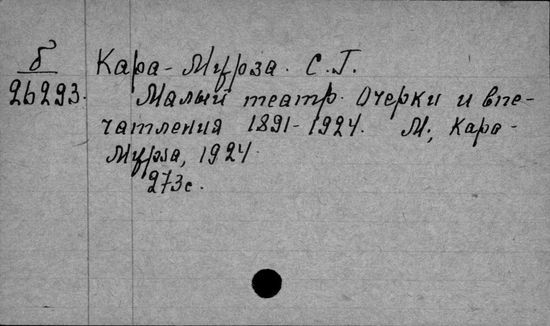 б Кара-Мурза. С.Г.
26293. Малый театр. Очерки и впе-
чатления 1891-1924. М., Кара-
Мурза, 1924.
273с.